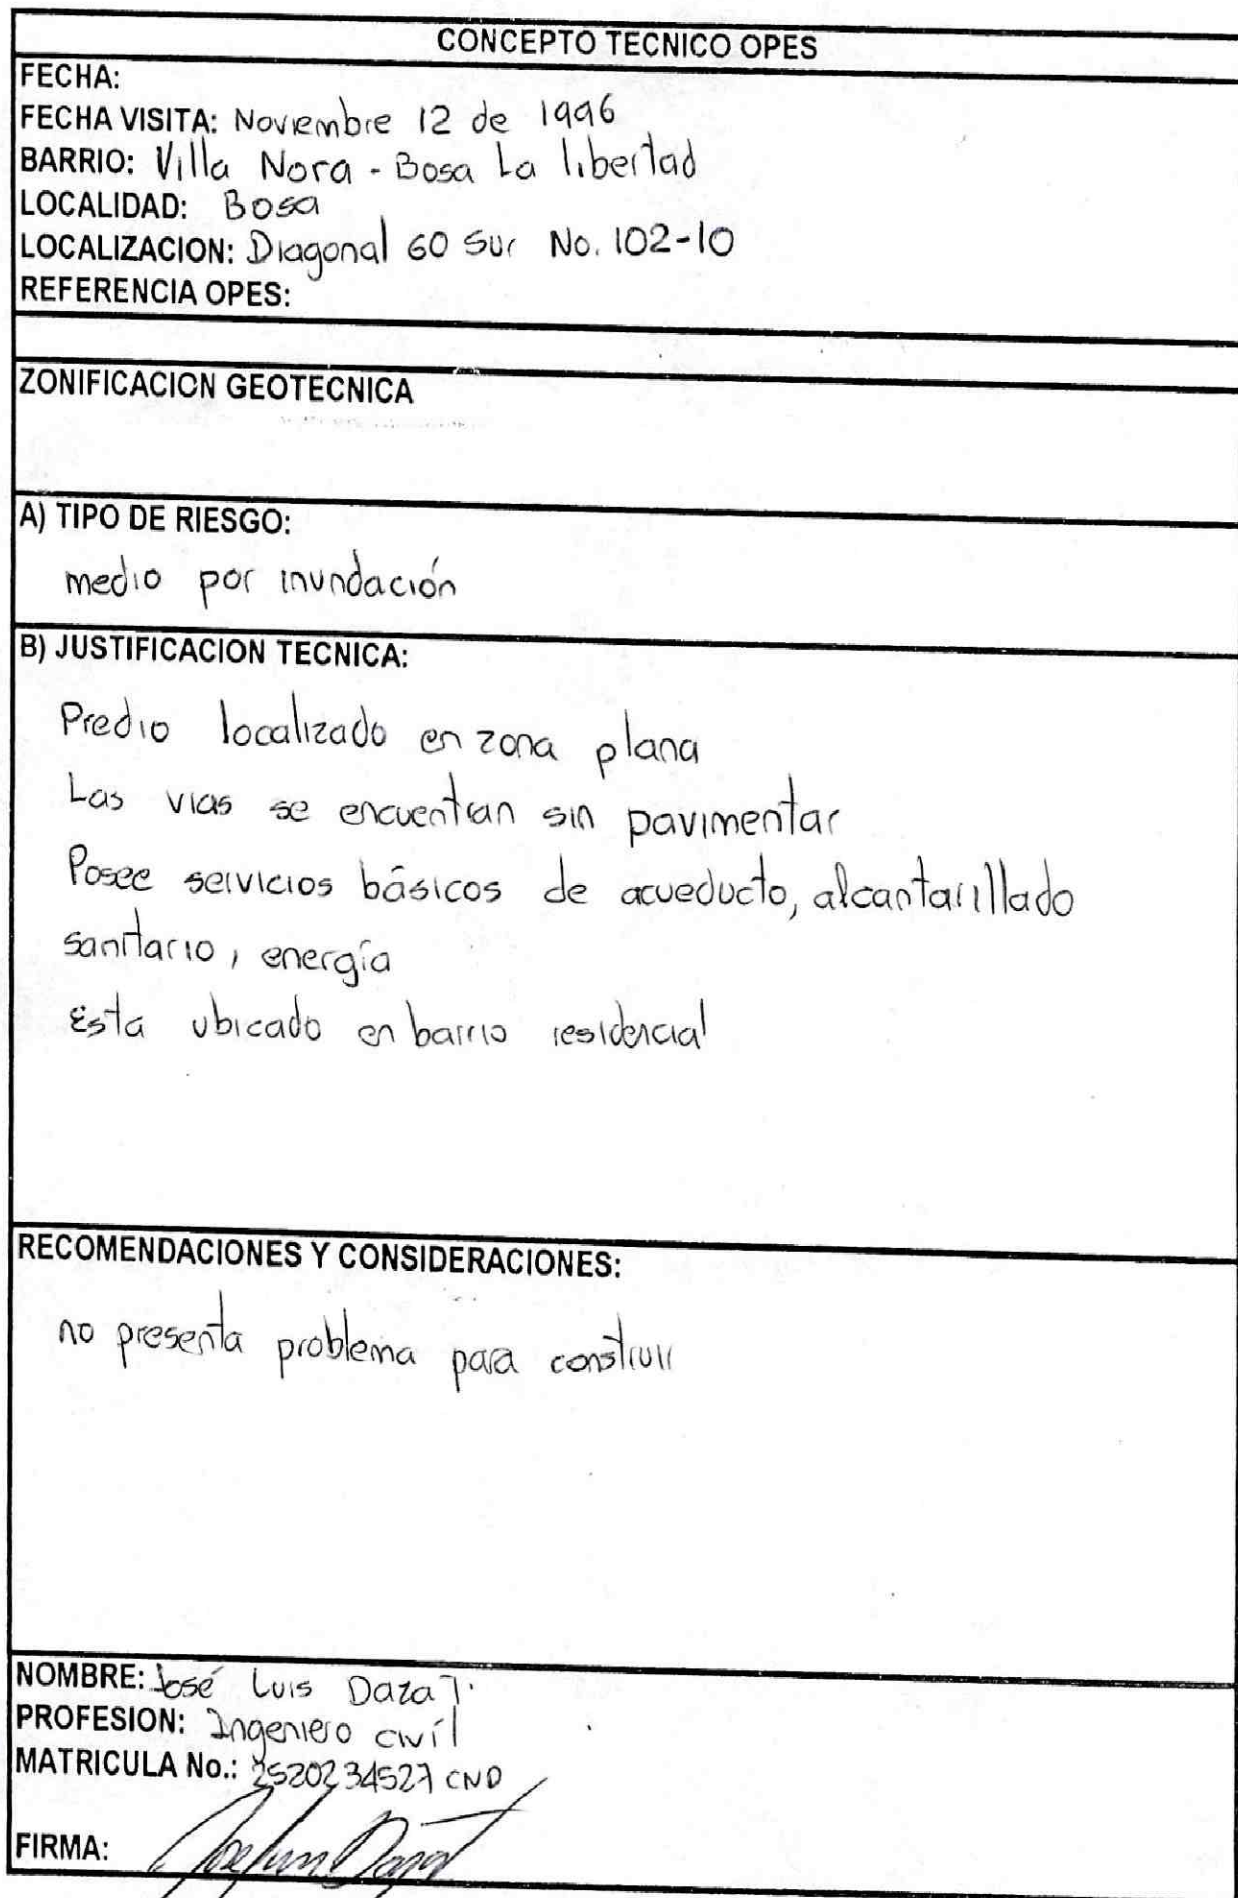 CONCEPTO TECNICO OPES
FECHA:
FECHA VISITA: Noviembre 12 de 1996
BARRIO: Villa Nora - Bosa La libertad
LOCALIDAD: Bosa
LOCALIZACION: Diagonal 60 Sur No. 102-10
REFERENCIA OPES:
ZONIFICACION GEOTECNICA
A) TIPO DE RIESGO:
medio por inundación
B) JUSTIFICACION TECNICA:
Predio localizado en zona plana
Las vias se encuentran sin pavimentar
Posee servicios básicos de acueducto, alcantarillado
sanitario, energía
Esta ubicado en barrio residencial
RECOMENDACIONES Y CONSIDERACIONES:
no presenta problema para construir
NOMBRE: José Luis Daza T.
PROFESION: Ingeniero civíl
MATRICULA No.: 2520234527 CND
FIRMA: